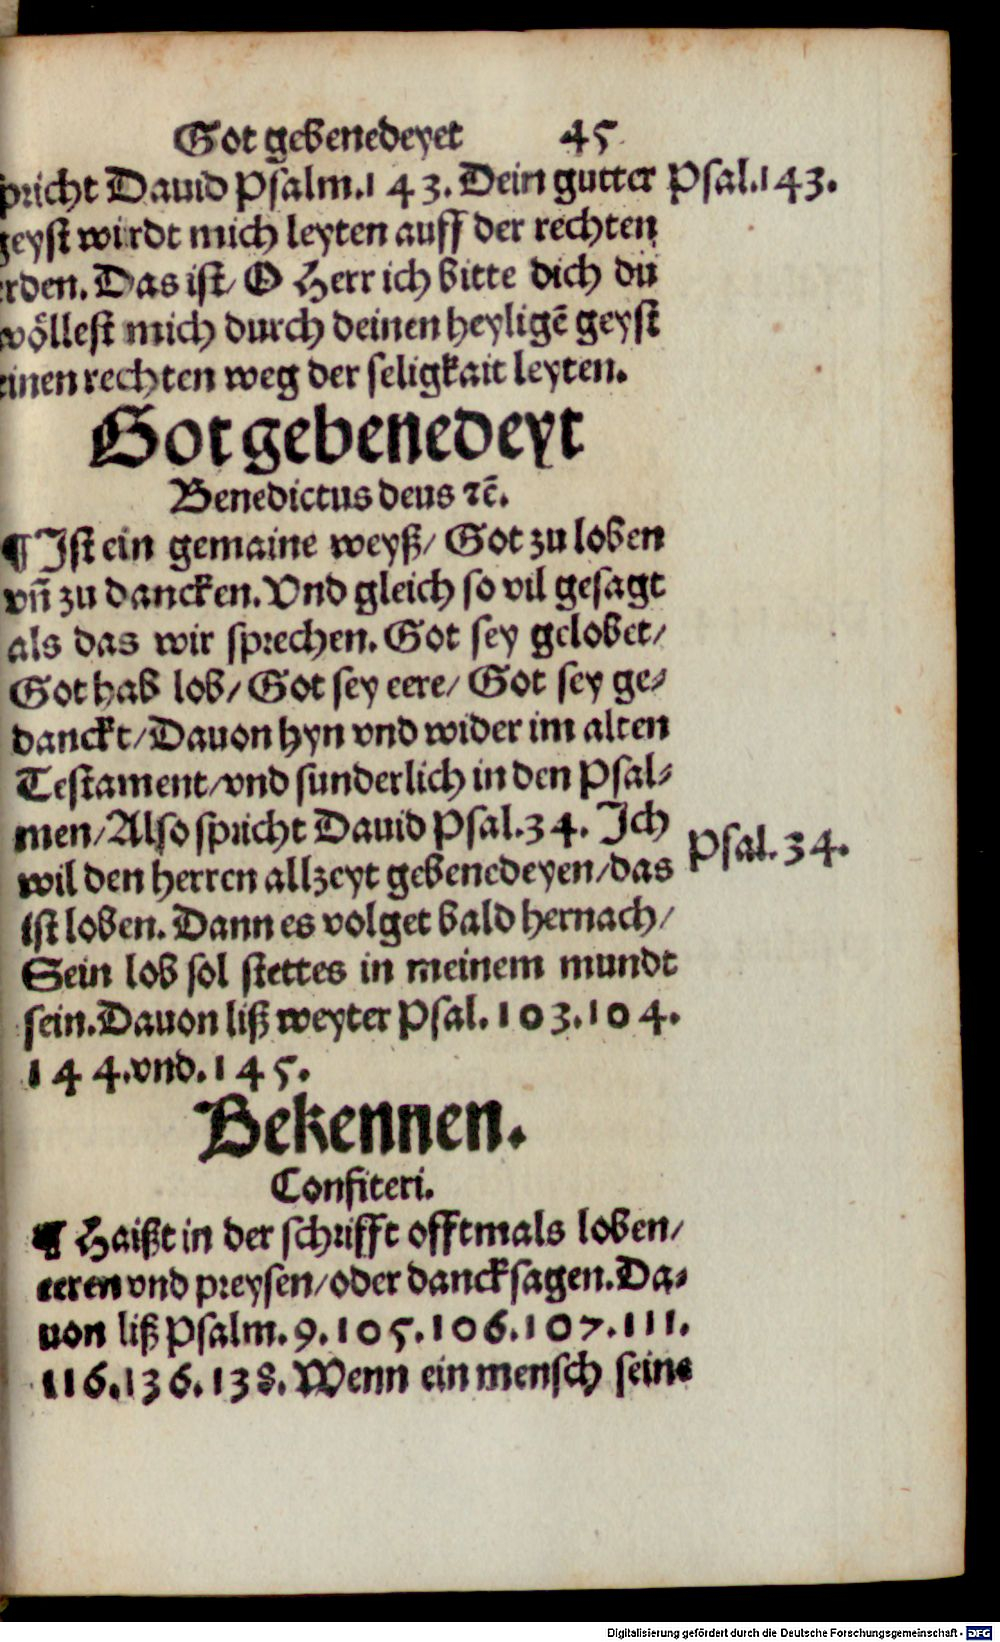 Got gebenedeyet 45
spricht Dauid Psalm.143. Dein gutter Psal.143.
geyst wirdt mich leyten auff der rechten
erden. Das ist/ O Herr ich bitte dich du
wöllest mich durch deinen heyligē geyst
einen rechten weg der seligkait leyten.
Got gebenedeyt
Benedictus deus ⁊c̄.
¶ Ist ein gemaine weyß/ Got zu loben
vñ zu dancken. Vnd gleich so vil gesagt
als das wir sprechen. Got sey gelobet/
Got hab lob/ Got sey eere/ Got sey ge⸗
danckt/ Dauon hyn vnd wider im alten
Testament/ vnd sunderlich in den Psal⸗
men/ Also spricht Dauid Psal.34. Ich
wil den herren allzeyt gebenedeyen/ das
Psal.34.
ist loben. Dann es volget bald hernach/
Sein lob sol stettes in meinem mundt
sein. Dauon liß weyter Psal.103.104.
144.vnd.145.
Bekennen.
Confiteri.
¶ Haißt in der schrifft offtmals loben/
eeren vnd preysen/ oder dancksagen. Da⸗
uon liß Psalm.9.105.106.107.111.
116.136.138. Wenn ein mensch seine
Digitalisierung gefördert durch die Deutsche Forschungsgemeinschaft - DFG